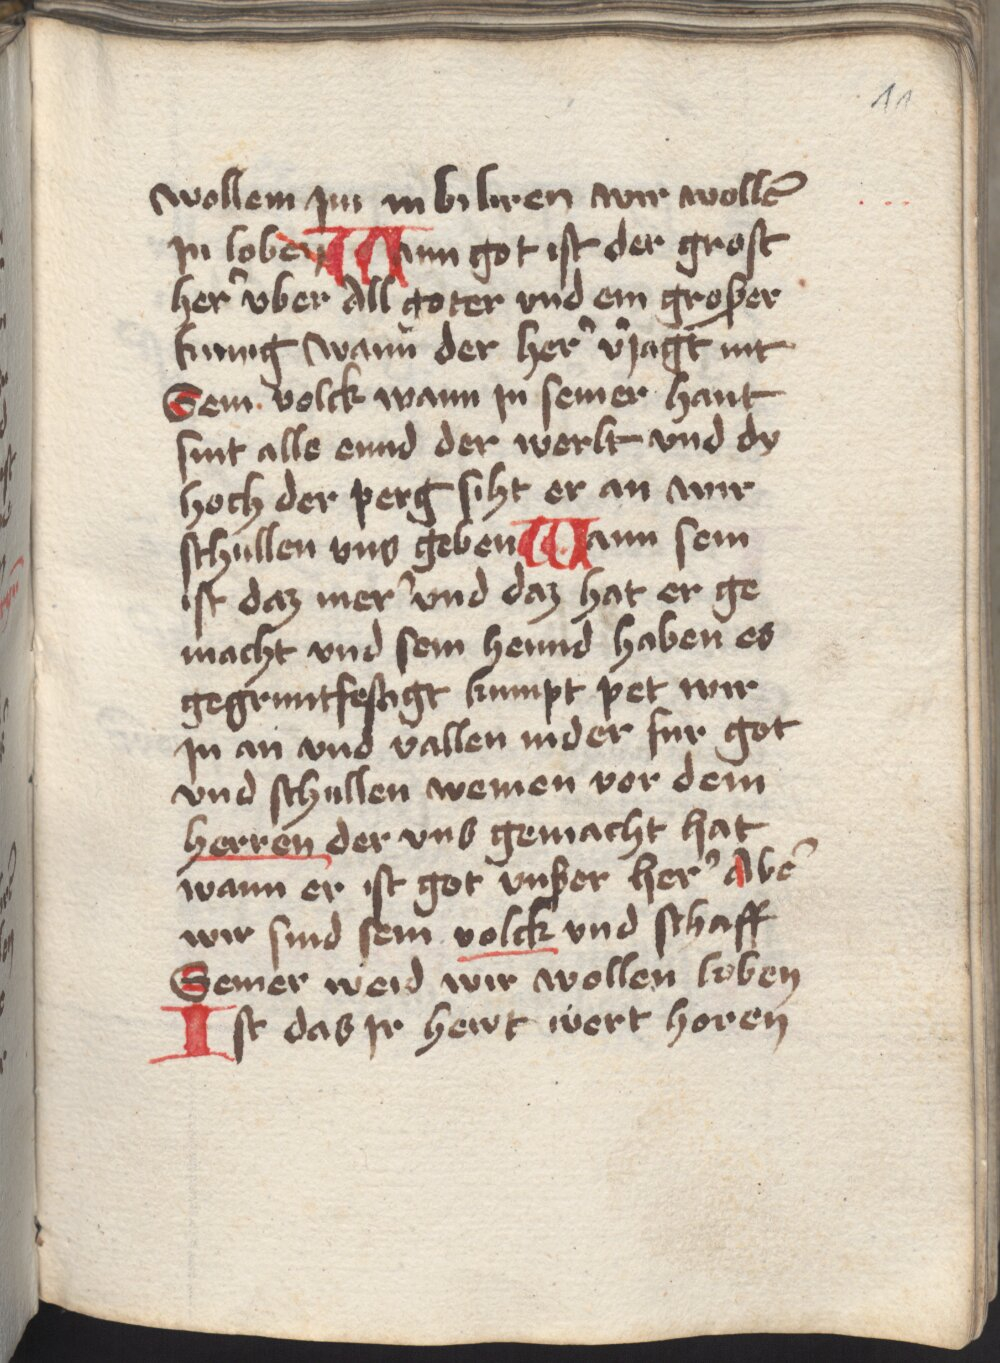 11
wollem im in bilnren wir wollē
in loben Wann got ist der grost
her᷑ vber All goter vnd ein groser
kunig Wann der her᷑ v᷑iagt nit
Sein volck wann in seiner hant
sint alle ennd der werlt vnd dy
hoch der perg siht er an wir
schullen vns geben Wann sein
ist daz mer᷑ vnd daz hat er ge
macht vnd sein hennd haben es
gegruntfestigt kumpt pet wir
in an vnd vallen nider fur got
vnd schullen weinen vor dem
herren der vns gemacht hat
wann er ist got vnser her᷑ Abe᷑
wir sind sein volck vnd schaff
Seiner weid wir wollen loben
Ist das ir hewt wert horen